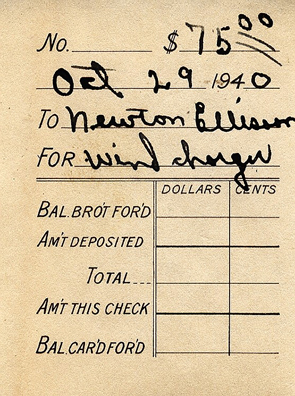 No. $ 75.00
Oct 29 1940
TO Newton Ellison
FOR wind charger
DOLLARS CENTS
BAL. BRO'T FOR'D
AM'T DEPOSITED
TOTAL....
AM'T THIS CHECK
BAL. CAR'D FOR'D